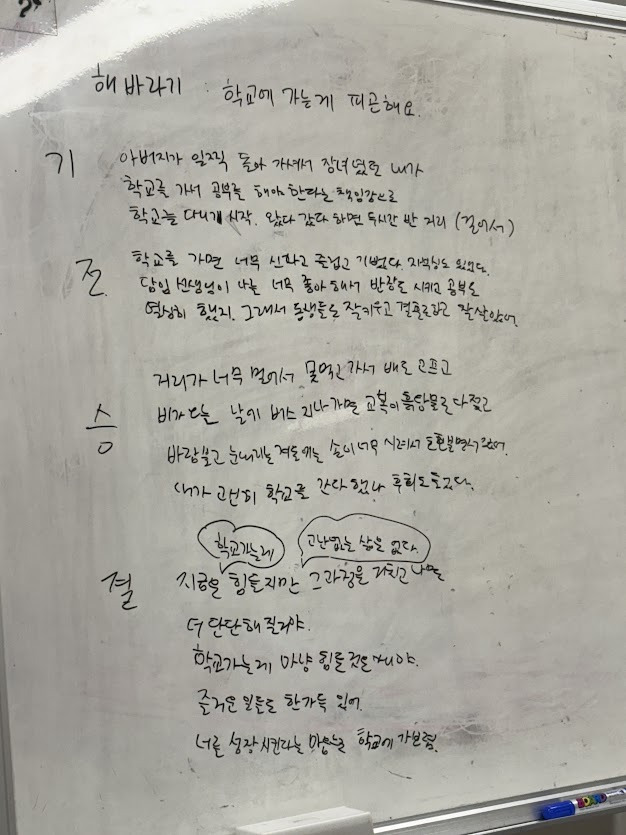 해바라기 : 학교에 가는게 피곤해요.
기
아버지가 일찍 돌아 가셔서 장녀였던 내가
학교를 가서 공부를 해야 한다는 책임감으로
학교를 다니게 시작. 왔다 갔다 하면 두시간 반 거리 (걸어서)
전
학교를 가면 너무 신나고 즐겁고 기뻤다. 자부심도 있었다.
담임 선생님이 나를 너무 좋아해서 반장도 시키고 공부도
열심히 했지. 그래서 동생들도 잘 키우고 결혼도하고 잘 살았어
승
거리가 너무 멀어서 못먹고 가서 배도 고프고
비가 오는 날에 버스 지나가면 교복이 흙탕물로 다 젖고
바람불고 눈내리는 겨울에는 손이 너무 시려서 호호불면서 갔어.
내가 괜히 학교를 간다 했나 후회도 했다.
학교가는게
고난없는 삶은 없다.
결
지금은 힘들지만 그 과정을 거치고 나면
더 단단해 질거야.
학교가는게 마냥 힘든것은 아니야.
즐거운 일들도 한가득 있어.
너를 성장시킨다는 마음으로 학교에 가보렴.